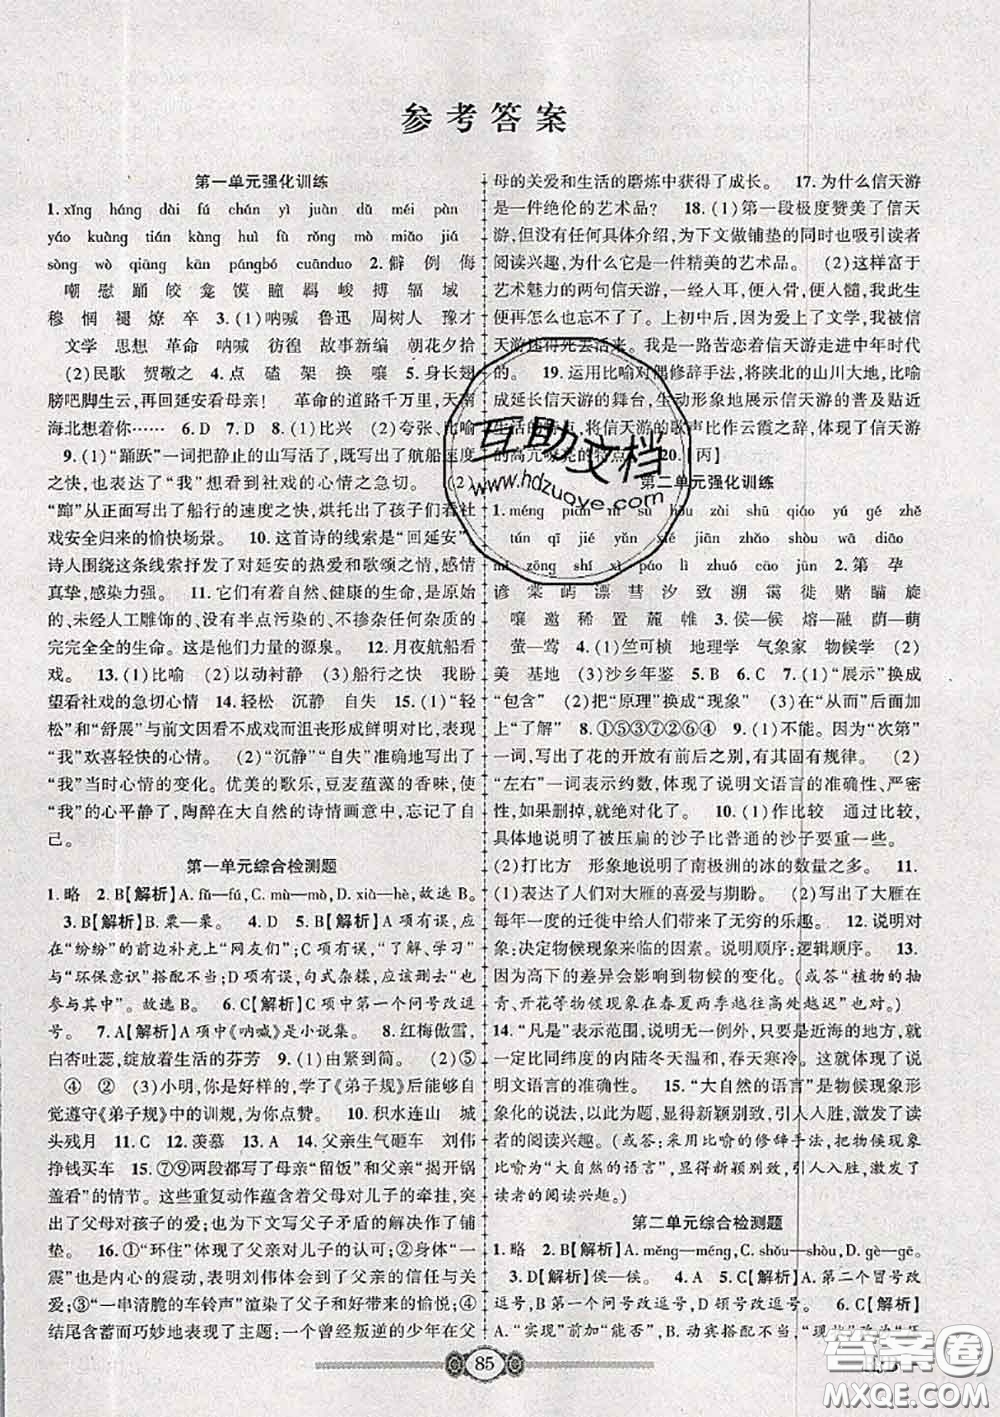 参考答案
第一单元强化训练
1.xīng háng dài fú chán yì juàn dá méi pàn
yáo kuàng tián kàng huì fù rǒng mò miǎo jiá
sòng wò qiāng kān pángbó cuānduo 2.僻 例 侮
嘲 慰 踊 皎 龛 馍 瞳 羁 峻 搏 辐 域
穆 惘 褪 燎 卒 3.(1)呐喊 鲁迅 周树人 豫才
文学 思想 革命 呐喊 彷徨 故事新编 朝花夕拾
(2)民歌 贺敬之 4.点 磕 架 换 嚷 5.身长翅
膀吧脚生云,再回延安看母亲! 革命的道路千万里,天南
海北想着你…… 6.D 7.D 8.(1)比兴 (2)夸张、比喻
9.(1)“踊跃”一词把静止的山写活了,既写出了航船速度
之快,也表达了“我”想看到社戏的心情之急切。 (2)
“蹿”从正面写出了船行的速度之快,烘托出了孩子们看社
戏安全归来的愉快场景。 10.这首诗的线索是“回延安”,
诗人围绕这条线索抒发了对延安的热爱和歌颂之情,感情
真挚,感染力强。 11.它们有着自然、健康的生命,是本色
的、未经人工雕饰的、没有半点污染的、不掺杂任何杂质的
完完全全的生命。这是他们力量的源泉。 12.月夜航船看
戏。 13.(1)比喻 (2)以动衬静 (3)船行之快 我急
盼望看社戏的急切心情 14.轻松 沉静 自失 15.(1)“轻
松”和“舒展”与前文因看不成戏而沮丧形成鲜明对比,表现了
“我”欢喜轻快的心情。 (2)“沉静”“自失”准确地写出了
“我”当时心情的变化。优美的歌乐,豆麦蕴藻的香味,使
“我”的心平静了,陶醉在大自然的诗情画意中,忘记了自
己。
第一单元综合检测题
1.略 2.B[解析]A.fǔ—fú,C.mù—mò,D.xià—hè,故选B。
3.B[解析]B.粟—栗。 4.D 5.B[解析]A项成分残缺,应
在“纷纷”的前边补充上“网友们”;C项搭配不当,“了解、学习”
与“环保意识”搭配不当;D项有语病,句式杂糅,应该删去“也
参与其中”。故选B。 6.C[解析]C项中第一个问号改逗
号。 7.A[解析]A项中《呐喊》是小说集。 8.红梅傲雪,
白杏吐蕊,绽放着生活的芬芳 9.(1)由繁到简。 (2)⑤
④ ② (3)小明,你是好样的,学了《弟子规》后能够自
觉遵守《弟子规》中的训规,为你点赞。 10.积水连山 城
头残月 11.C 12.羡慕 13.A 14.父亲生气砸车 刘伟
挣钱买车 15.⑦⑨两段都写了母亲“留饭”和父亲“掀开锅
盖看”的情节。这些重复动作蕴含着父母对儿子的牵挂,突
出了父母对孩子的爱;也为下文写父子矛盾的解决作了铺
垫。 16.①“环住”体现了父亲对儿子的认可;②身体“一
震”也是内心的震动,表明刘伟体会到了父亲的信任与关爱
③“一串清脆的车铃声”渲染了父子和好带来的愉悦;④
结尾含蓄而巧妙地表现了主题:一个曾经叛逆的少年在父
母的关爱和生活的磨炼中获得了成长。 17.为什么信天游
是一件绝伦的艺术品? 18.(1)第一段极度赞美了信天
游,但没有任何具体介绍,为下文做铺垫的同时也吸引读者
阅读兴趣,为什么它是一件精美的艺术品。 (2)这样富于
艺术魅力的两句信天游,一经人耳,便入骨,便入髓,我此生
便再怎么也忘不了了。上初中时,因为爱上了文学,我爱信
天游迷得死去活来。我是一路苦恋着信天游走进中年时代
的。 19.运用比喻和对偶修辞手法,将陕北的山川大地,比喻
成延长信天游的舞台,生动形象地展示信天游的普及贴近
生活的特点,将信天游的歌声比作云霞之辞,体现了信天游
的高亢嘹亮的特点。 20.[丙]
第二单元强化训练
1.méng piān sù hōu zài shū qiáo yú gé zhě
tún qī jié yǔn xié zhāo shòu wā diāo
nì zōng shí xì pá lì zhuó cāo jùn 2.第 孕
谚 棠 屿 漂 彗 汐 致 溯 霭 徙 赌 瞄 旋
嚷 邀 稀 置 麓 帷 3.侯—候 熔—融 荫—萌
萤—莺 4.(1)竺可桢 地理学 气象家 物候学 (2)
美 基地 (3)沙乡年鉴 5.B 6.C 7.(1)“展示”换成
“包含” (2)把“原理”换成“现象” (3)在“从而”后面加
上“了解” 8.①⑤③⑦②⑥④ 9.(1)不能。因为“次第”
一词,写出了花的开放有前后之别,有其固有规律。 (2)
“左右”一词表示约数,体现了说明文语言的准确性、严密
性,如果删掉,就绝对化了。 10.(1)作比较 通过比较,
具体地说明了被压扁的沙子比普通的沙子要重一些。
(2)打比方 形象地说明了南极洲的冰的数量之多。 11.
(1)表达了人们对大雁的喜爱与期盼。 (2)写出了大雁在
每年一度的迁徙中给人们带来了无穷的乐趣。 12.说明对
象:决定物候现象来临的因素。说明顺序:逻辑顺序。 13.
因为高下的差异会影响到物候的变化。(或答“植物的抽
青、开花等物候现象在春夏两季越往高处越迟”也对。)
14.“凡是”表示范围,说明无一例外,只要是近海的地方,就
一定比同纬度的内陆冬天温和,春天寒冷。这体现了说
明文语言的准确性。 15.“大自然的语言”是物候现象形
象化的说法,以此为题,新颖别致,引人入胜,激发了读者
的阅读兴趣。(或答:采用比喻的修辞手法,把物候现象
比喻为“大自然的语言”,显得新颖别致,引人入胜,激发了
读者的阅读兴趣。)
第二单元综合检测题
1.略 2.B[解析]A.měng—méng,C.shǒu—shòu,D.gè—gē。
3.D[解析]侯—候。 4.A 5.C[解析]A.第二个冒号改
逗号。B.第一个问号改逗号。D顿号改逗号。 6.C[解析]
A.“实现”前加“能否”。B.动宾搭配不当,
85
互助文档
www.hdzuoye.com
答案圈
MXQE.COM